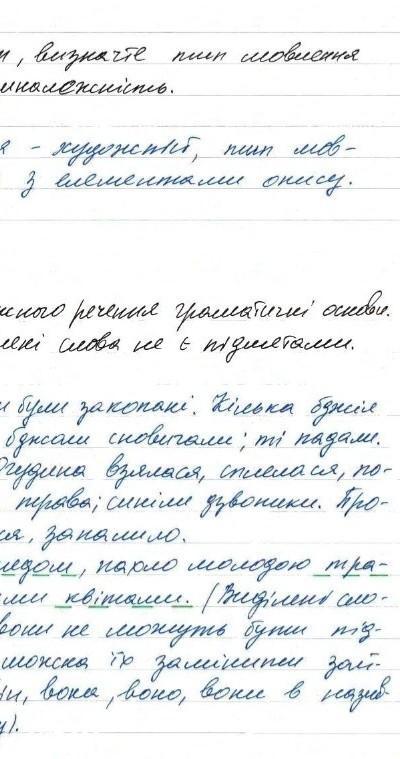 , визначте тип мовлення
приналежність.
– художній, тип мов-
з елементами опису.
речення граматичні основи.
слова не є підметами.
були закопані. Кілька бджіл
бджоли сновигали; ті падали.
Огудина взялася, сплелася, по-
трава; синіли дзвоники. Про-
, запашило.
медом, пахло молодою тра-
квітами. (Виділені сло-
вони не можуть бути під-
можна їх замінити зай-
він, вона, воно, вони в назив-